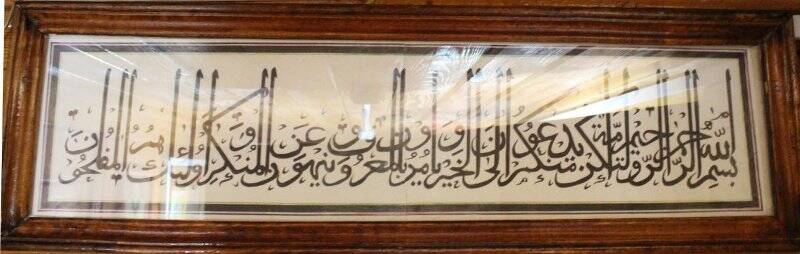 بسم الله الرحمن الرحيم ولتكن منكم أمة يدعون إلى الخير ويأمرون بالمعروف وينهون عن المنكر وأولئك هم المفلحون